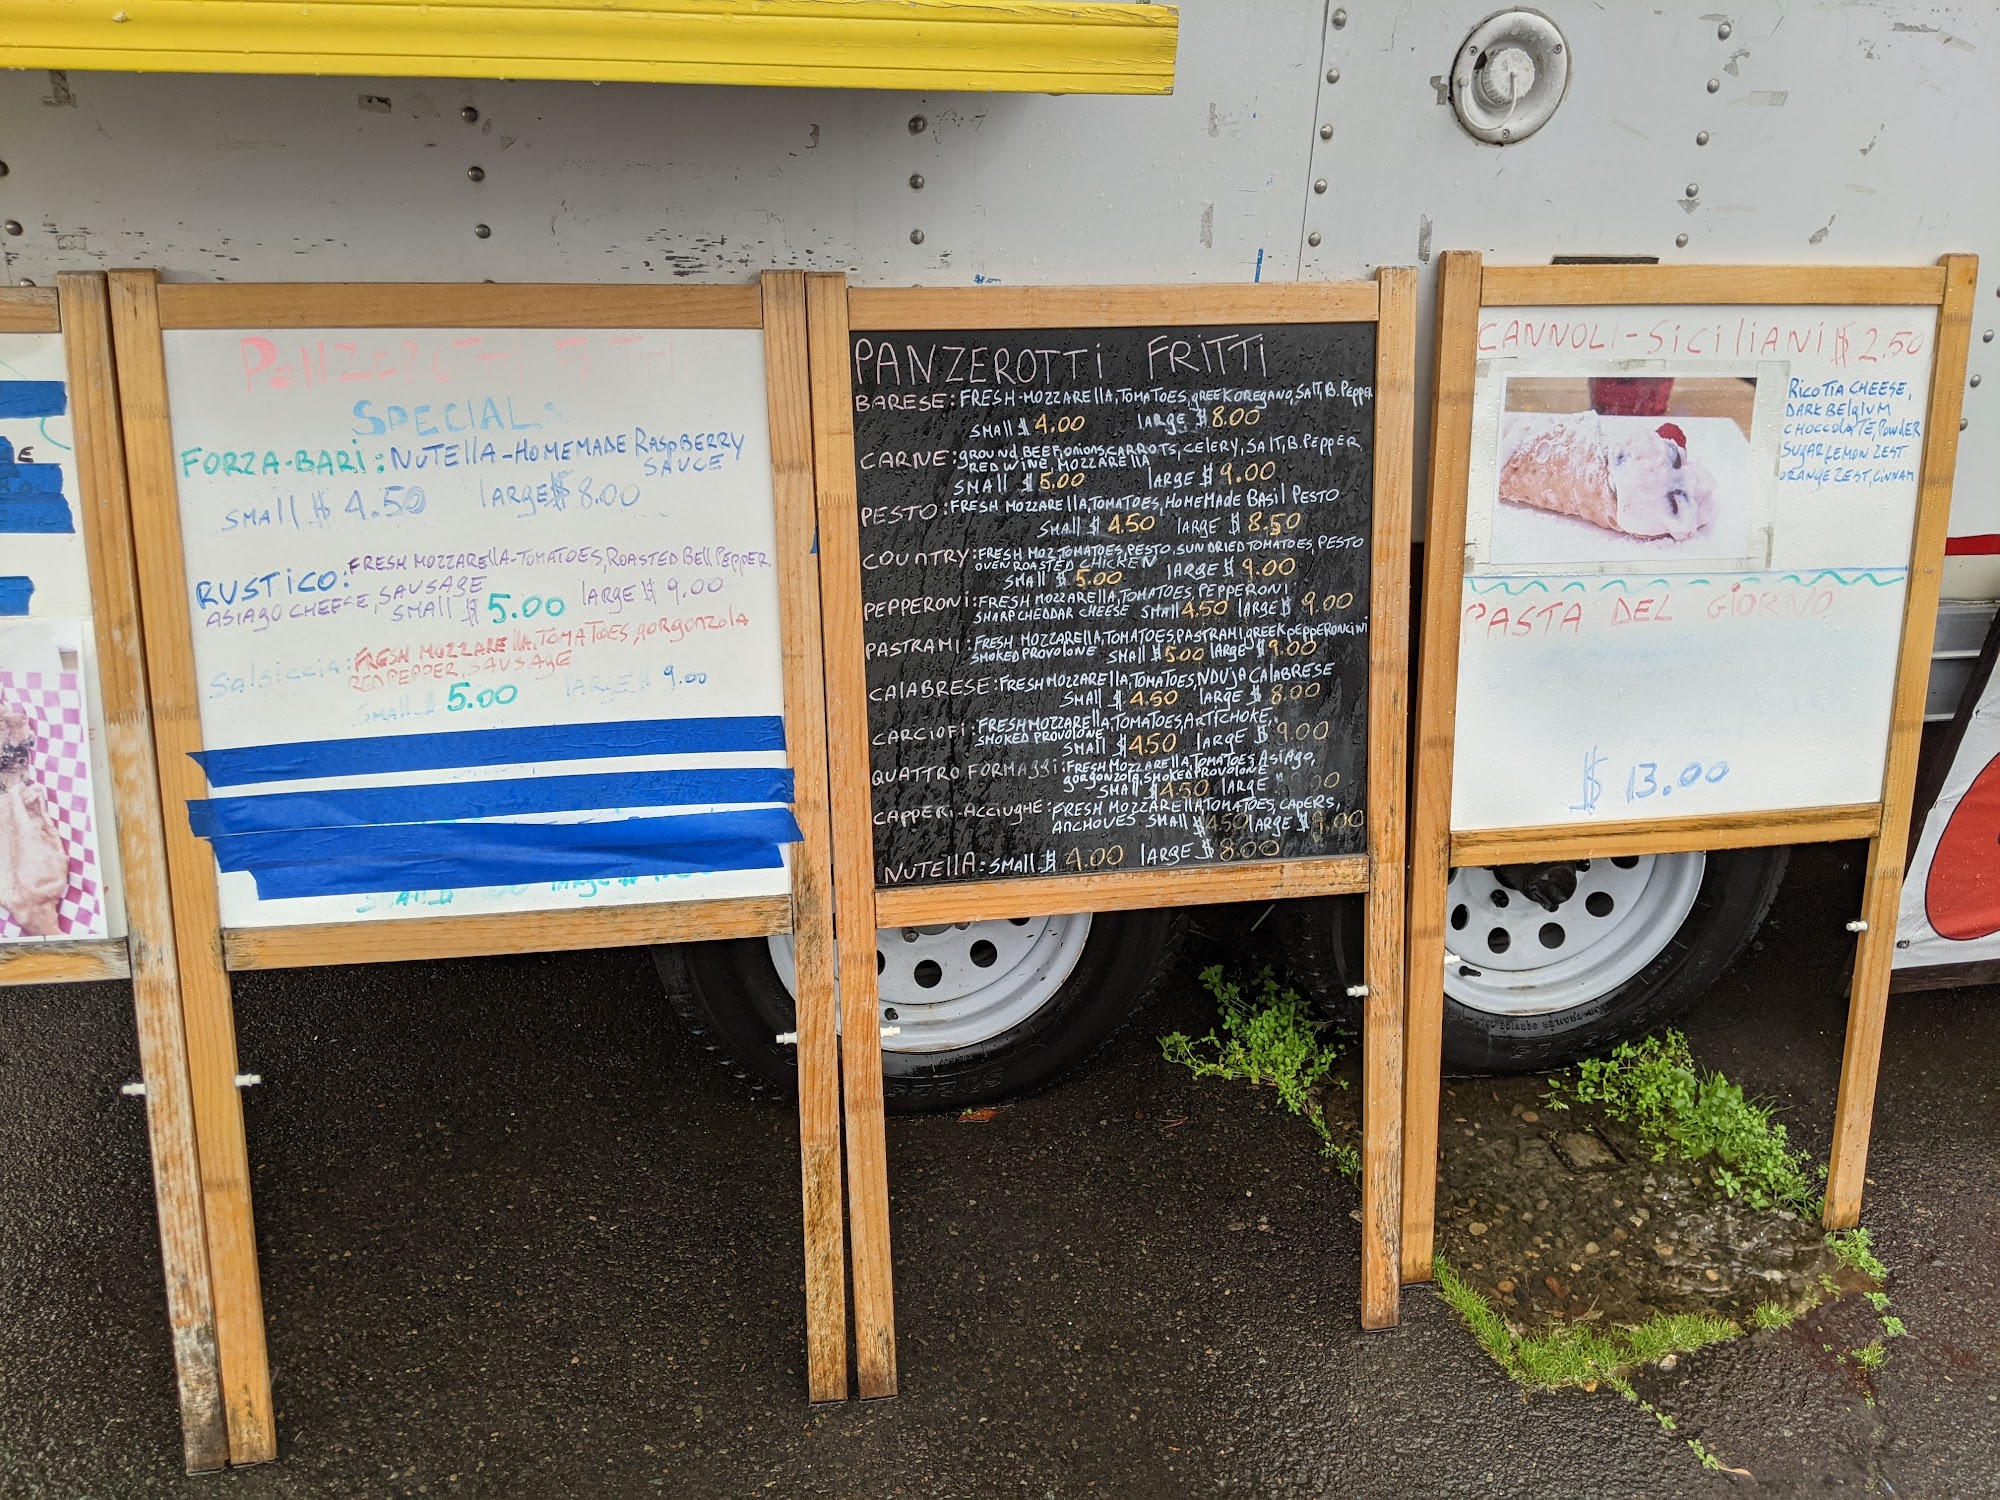 E
PANZEROTTI FRITTI
SPECIAL:
FORZA-BARI: NUTELLA-HOMEMADE RASPBERRY
SAUCE
SMALL $ 4.50 LARGE $ 8.00
RUSTICO: FRESH MOZZARELLA-TOMATOES, ROASTED BELL PEPPER
ASIAGO CHEESE, SAUSAGE
SMALL $ 5.00 LARGE $ 9.00
Salsiccia: FRESH MOZZARELLA, TOMATOES, gORgONZOLA
RED PEPPER, SAUSAGE
SMALL $ 5.00 LARGE $ 9.00
PANZEROTTi FRiTTi
BARESE: FRESH-MOZZARELLA, TOMATOES, gREEK OREGANO, SALT, B. PEPPER
SMALL $ 4.00 LARGE $ 8.00
CARNE: gROUND BEEF, ONIONS, CARROTS, CELERY, SALT, B. PEPPER
RED WINE, MOZZARELLA
SMALL $ 5.00 LARGE $ 9.00
PESTO: FRESH MOZZARELLA, TOMATOES, HOMEMADE BASIL PESTO
SMALL $ 4.50 LARGE $ 8.50
COUNTRY: FRESH MOZ TOMATOES, PESTO. SUN DRIED TOMATOES, PESTO
OVEN ROASTED CHICKEN
SMALL $ 5.00 LARGE $ 9.00
PEPPERONI: FRESH MOZZARELLA, TOMATOES, PEPPERONI
SHARP CHEDDAR CHEESE SMALL 4.50 LARGE $ 9.00
PASTRAMI: FRESH MOZZARELLA, TOMATOES, PASTRAMI, GREEK PEPPERONCINI
SMOKED PROVOLONE SMALL $ 5.00 LARGE $ 9.00
CALABRESE: FRESH MOZZARELLA, TOMATOES, NDUJA CALABRESE
SMALL $ 4.50 LARGE $ 8.00
CARCIOFI: FRESH MOZZARELLA, TOMATOES, ARTICHOKE,
SMOKED PROVOLONE
SMALL $ 4.50 LARGE $ 9.00
QUATTRO FORMAGGI: FRESH MOZZARELLA, TOMATOES, ASIAGO,
gORgONZOLA, SMOKED PROVOLONE
SMALL $ 4.50 LARGE
CAPPERI-ACCIUGHE: FRESH MOZZARELLA, TOMATOES, CAPERS,
ANCHOVES SMALL $ 4.50 LARGE $ 9.00
NUTELLA: SMALL $ 4.00 LARGE $ 8.00
CANNOLI-SiCiliANi $ 2.50
RICOTTA CHEESE,
DARK BELGIUM
CHOCCOLATE, POWDER
SUGAR LEMON ZEST
ORANGE ZEST, CINNAM
PASTA DEL GiORNO
$ 13.00